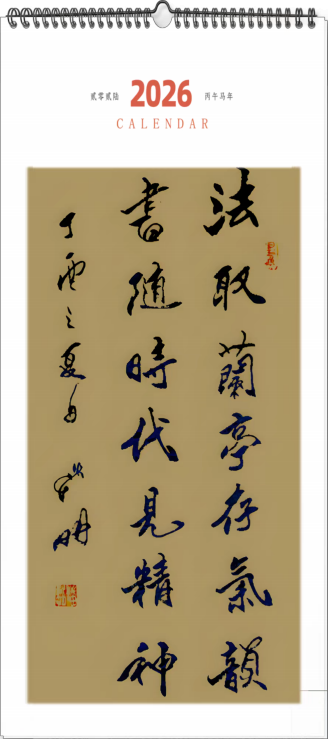 贰零贰陆 2026 丙午马年
CALENDAR
法取蘭亭存氣韻
書隨時代見精神
丁酉之夏月
明